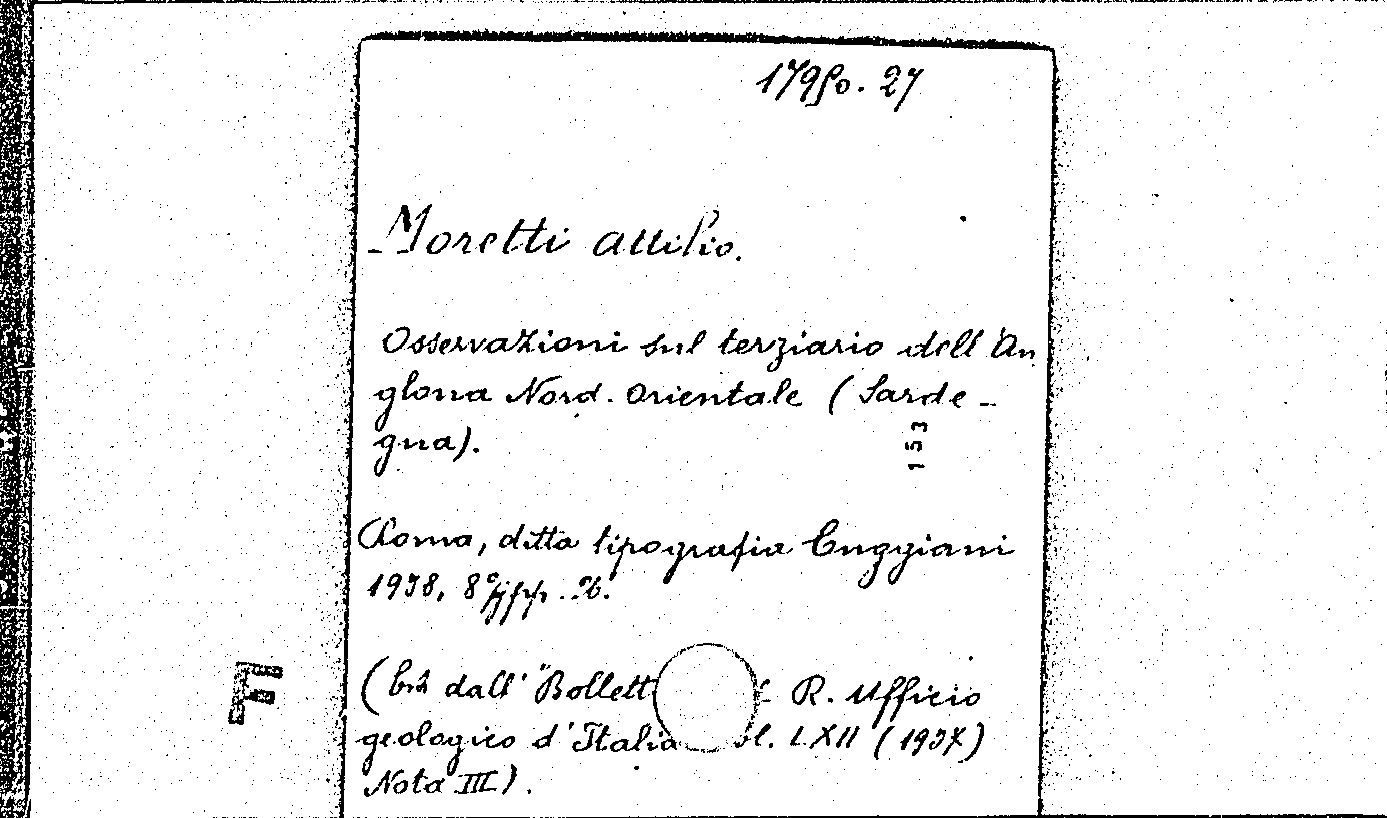 179 fo. 27
Moretti Attilio.
Osservazioni sul terziario dell'An
glona Nord-Orientale (Sarde-
gna).
153
Roma, ditta tipografia Cuggiani
1938, 8°
F
dall' "Bollett R. Ufficio
geologico d'Italia ol. LXII (1937)
Nota III).